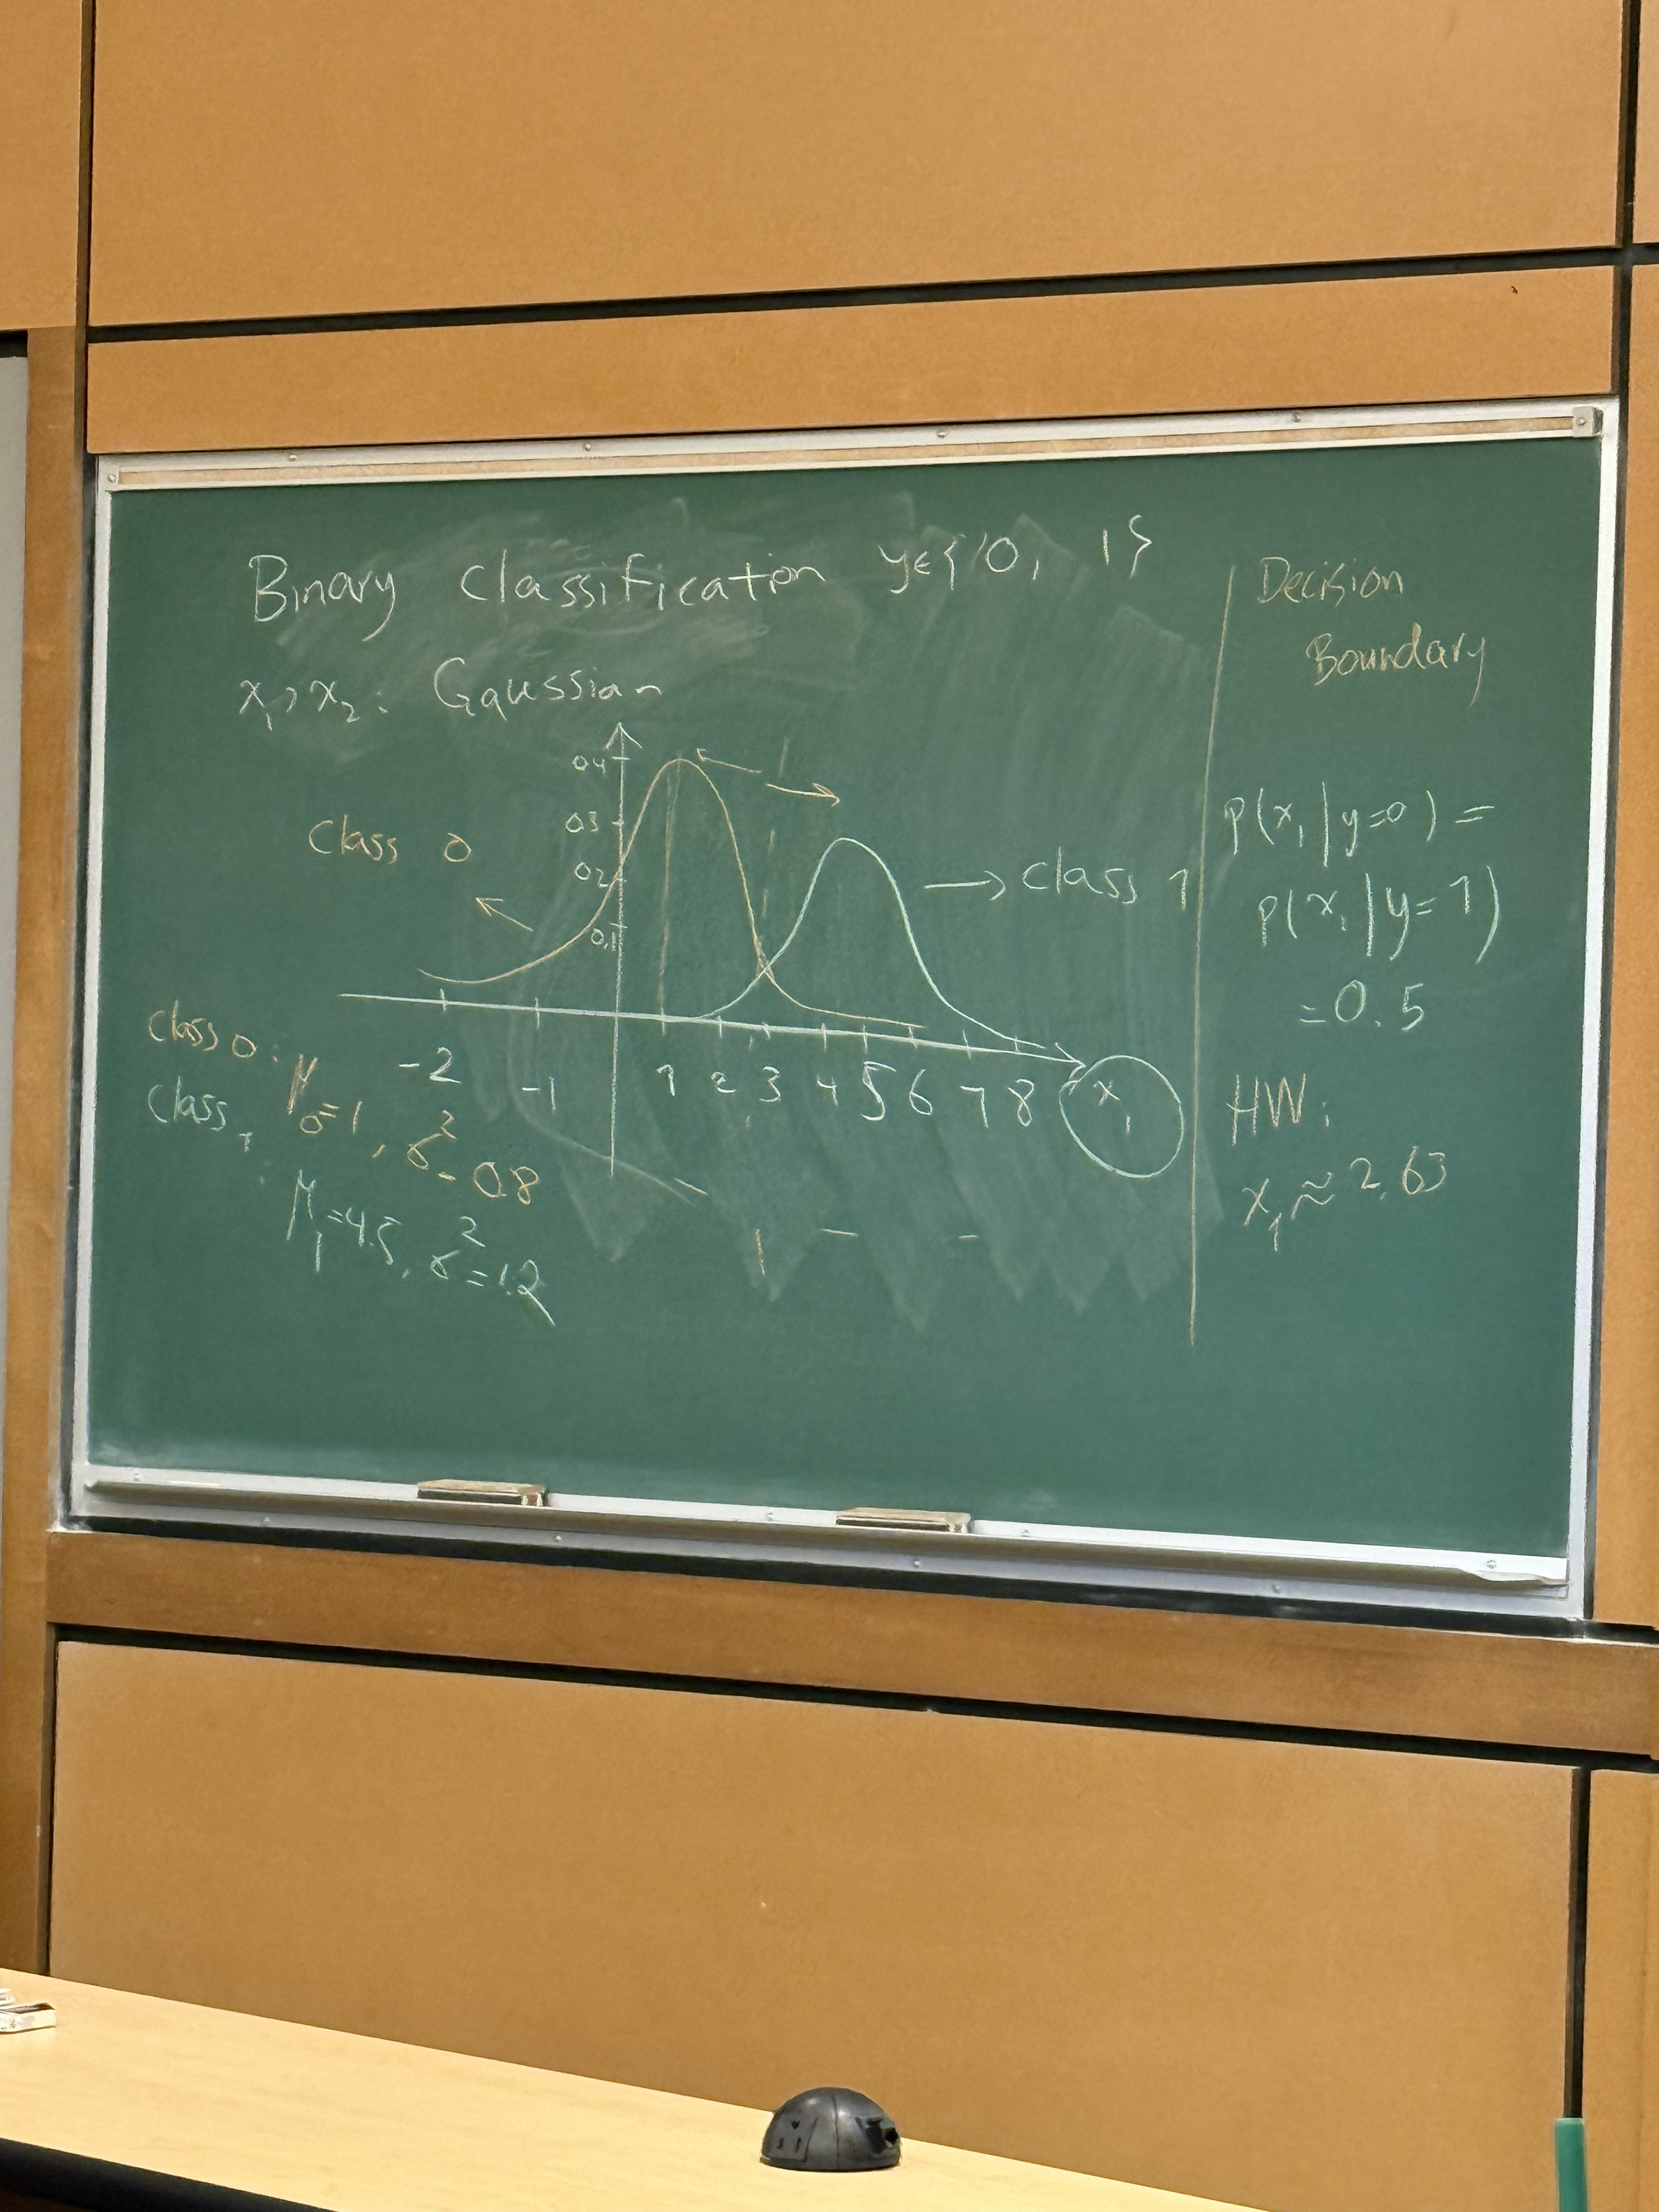 Binary Classification y∈{0, 1}
x₁, x₂: Gaussian
0.4
0.3
0.2
0.1
Class 0
→ Class 1
-2 -1 1 2 3 4 5 6 7 8 x₁
Class 0: μ₀=1, σ²=0.8
Class 1: μ₁=4.5, σ²=1.2
Decision
Boundary
p(x₁|y=0) =
p(x₁|y=1)
=0.5
HW:
x₁≈2.63